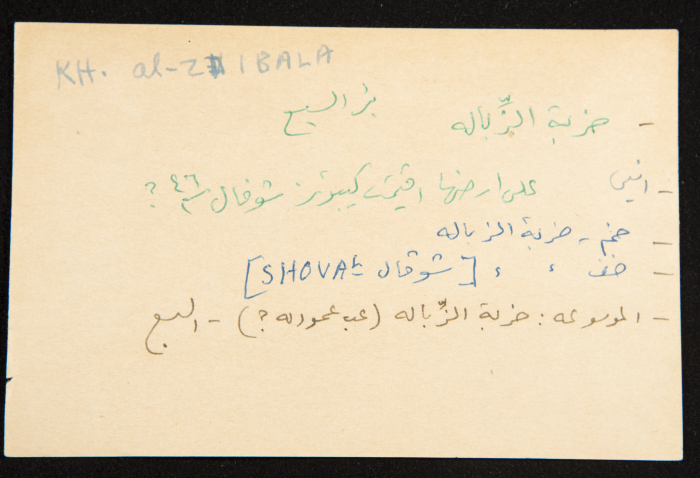 KH. al-ZIBALA
- خربة الزِّباله بئر السبع
- انيس على ارضها اقيمت كيبوتز شوفال ٤٦ ?
- خم - خربة الزباله
- خف ، ، [شوقال SHOVAL]
- الموسوعه : خربة الزِّباله (عب عموده ?) - السبع